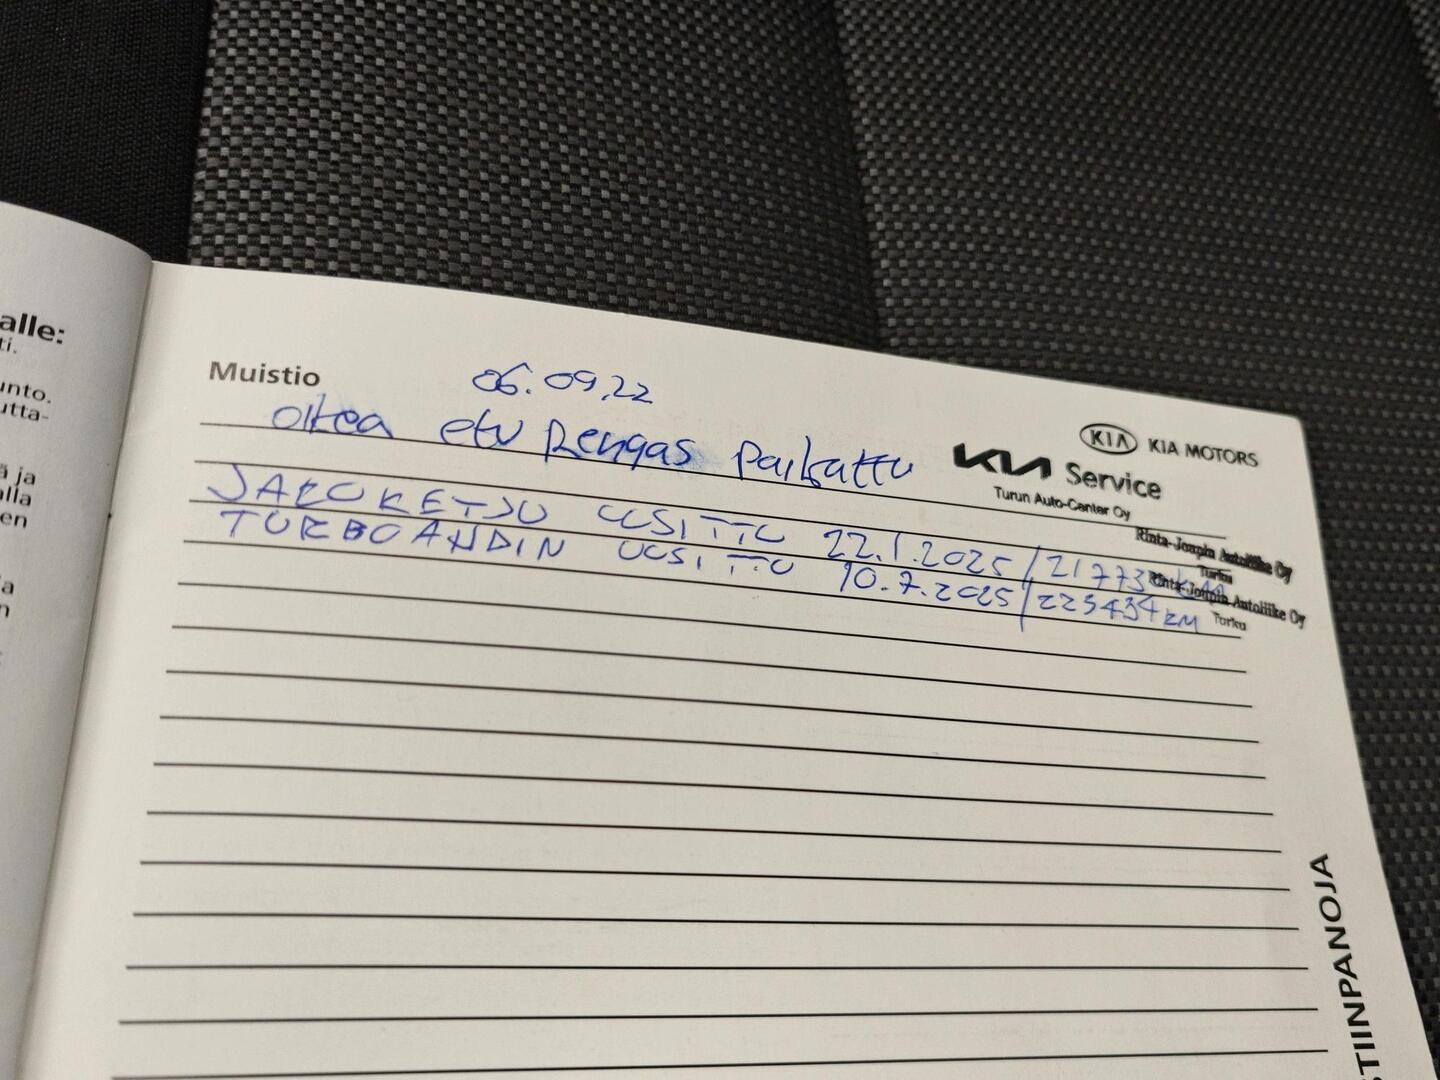 alle:
ti.
unto.
utta-
ä ja
alla
en
ja
n
Muistio
06.09.22
oikea etu Rengas paikattu
KIA KIA MOTORS
KIA Service
Turun Auto-Center Oy
JAKOKETJU UUSITTU 22.1.2025 /
Rinta-Joupin Autoliike Oy
Turku
TURBOAHDIN UUSITTU 10.7.2025 / 223434 KM
Rinta-Joupin Autoliike Oy
Turku
STIINPANOJA